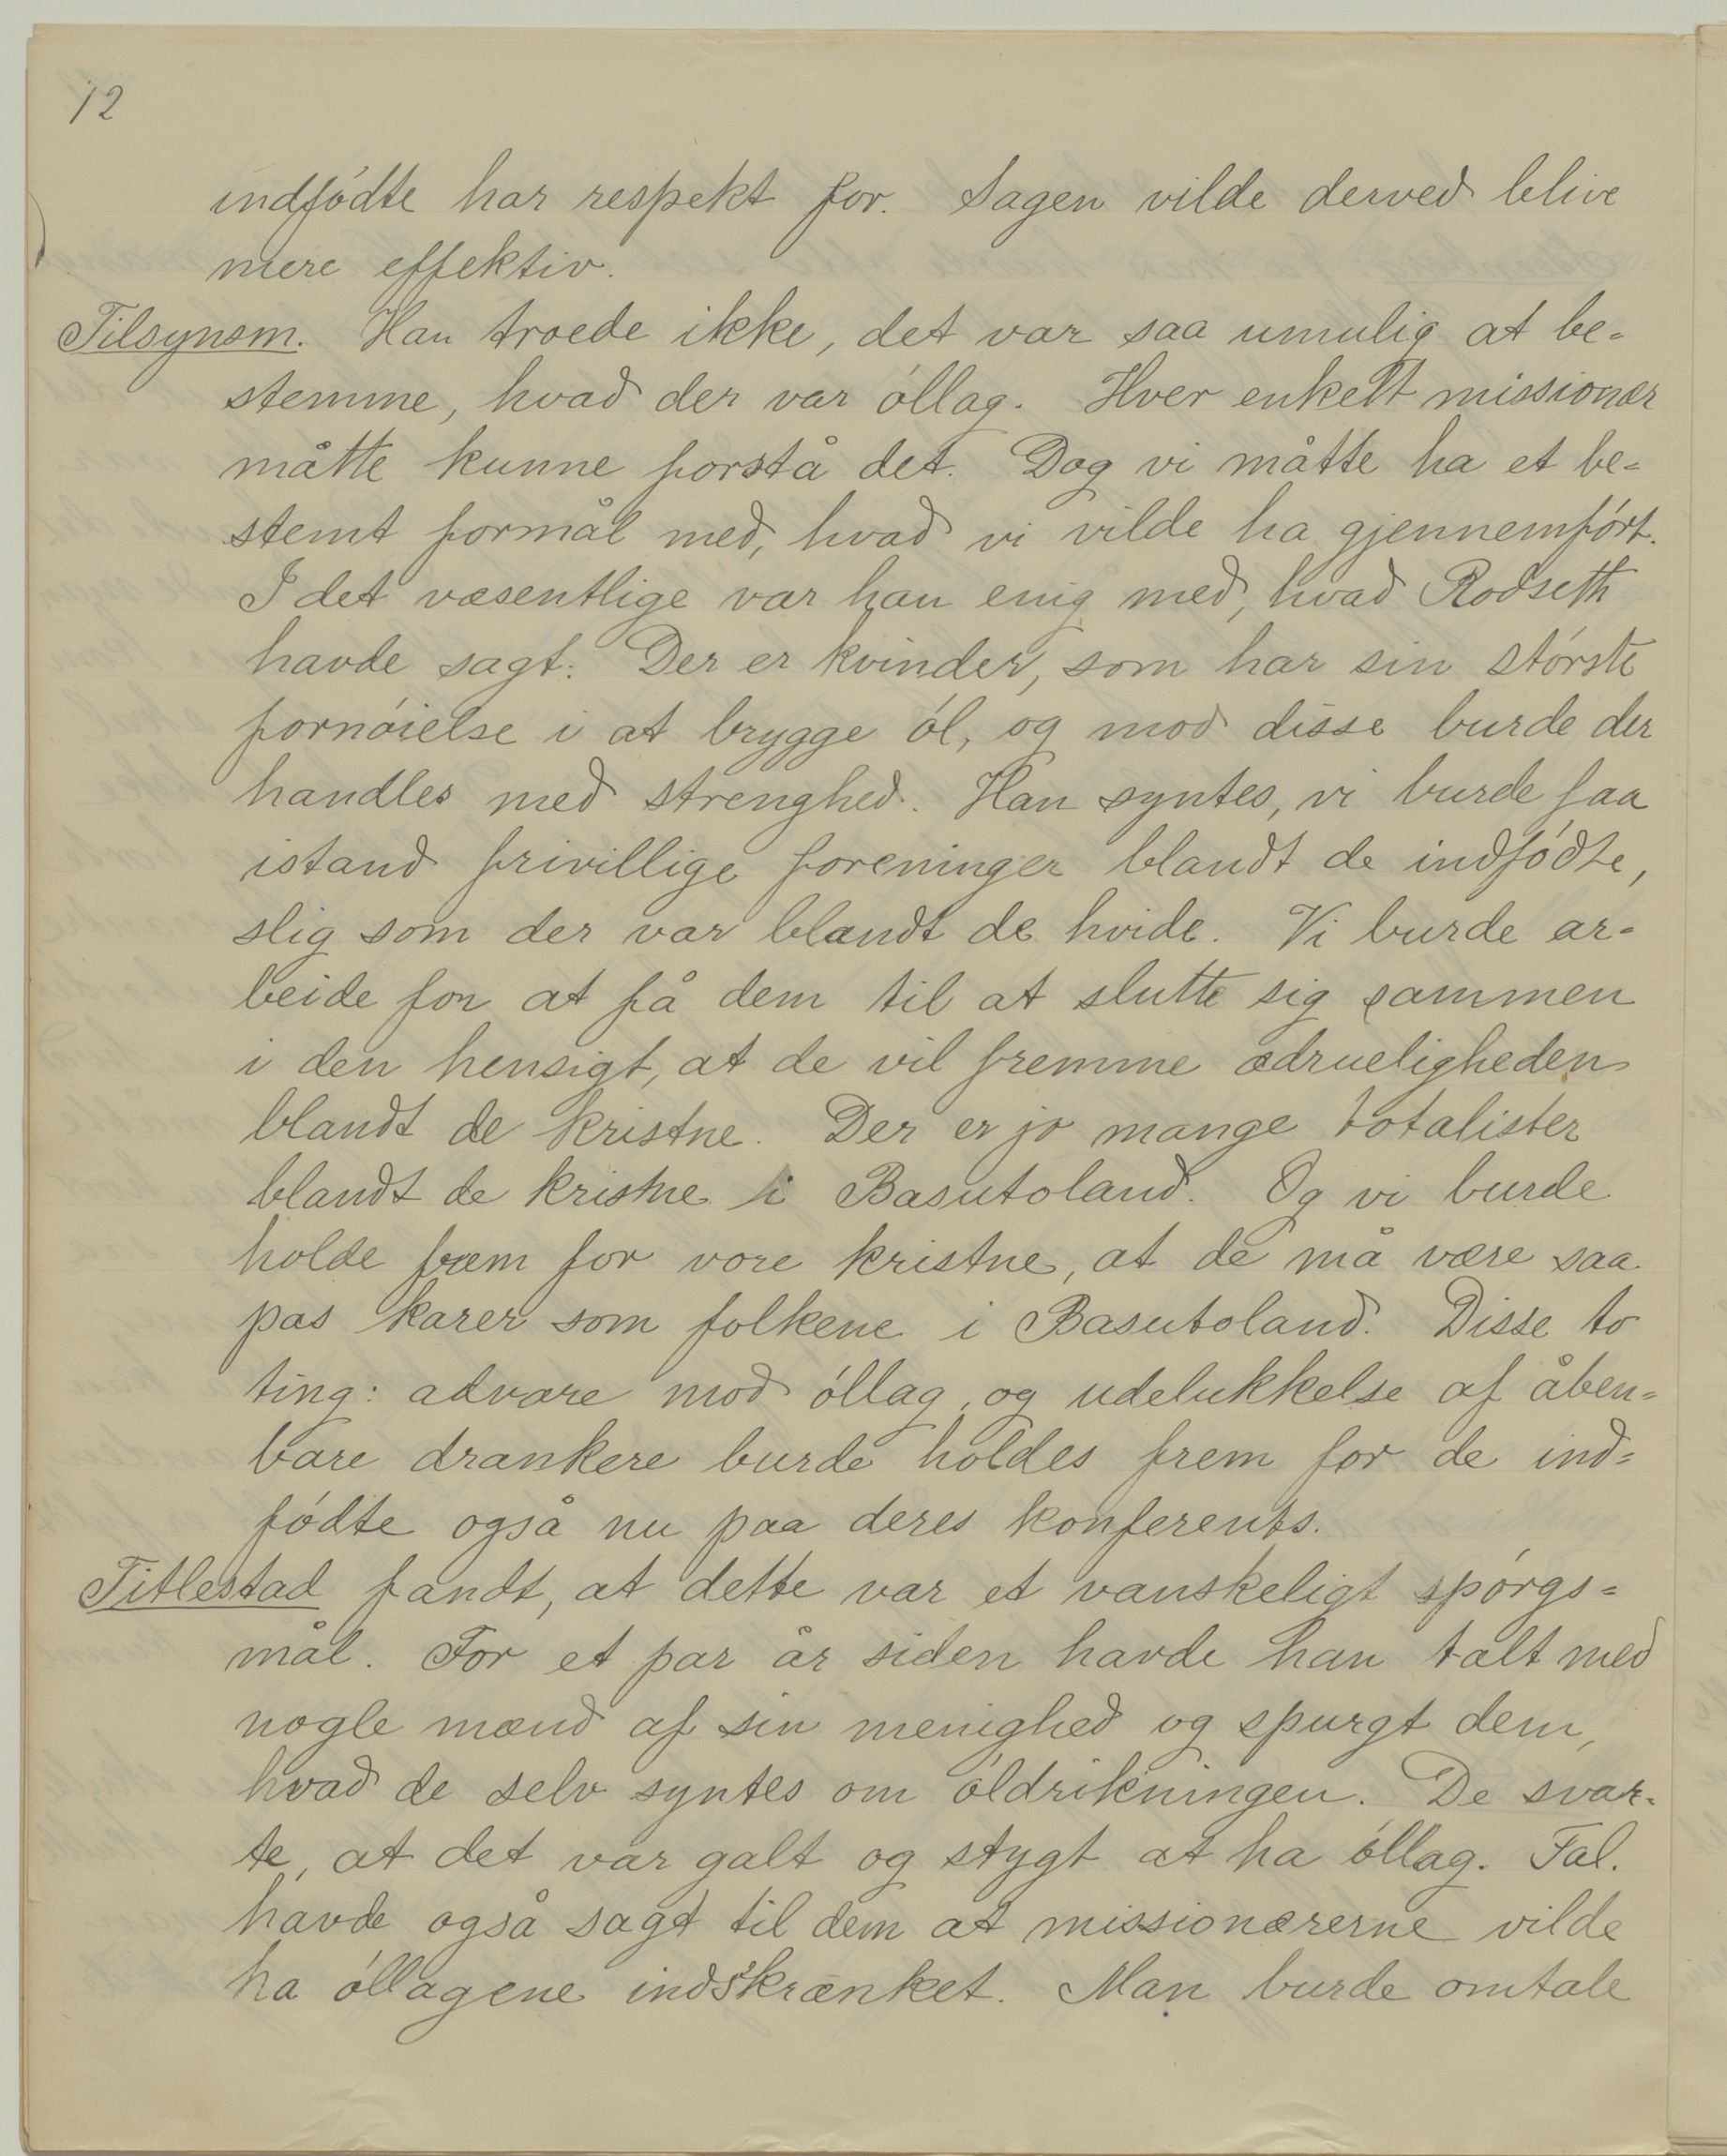 12
indfódte har respekt for. Sagen vilde derved blive
mere effektiv.
Tilsynsm. Han troede ikke, det var saa umulig at be=
stemme, hvad der var óllag. Hver enkelt missionær
måtte kunne forstå det. Dog vi måtte ha et be=
stemt formål med, hvad vi vilde ha gjennemfórt.
I det væsentlige var han enig med, hvad Rodseth
havde sagt. Der er kvinder, som har sin stórste
fornóielse i at brygge ól, og mod disse burde der
handles med strenghed. Han syntes, vi burde faa
istand frivillige foreninger blandt de indfódte,
slig som der var blandt de hvide. Vi burde ar=
beide for at få dem til at slutte sig sammen
i den hensigt, at de vil fremme ædrueligheden
blandt de kristne. Der er jo mange totalister
blandt de kristne i Basutoland. Og vi burde
holde frem for vore kristne, at de må være saa
pas karer som folkene i Basutoland. Disse to
ting: advare mod óllag, og udelukkelse af åben=
bare drankere burde holdes frem for de ind=
fódte også nu paa deres konferents.
Titlestad fandt, at dette var et vanskeligt spórgs=
mål. For et par år siden havde han talt med
nogle mænd af sin menighed og spurgt dem,
hvad de selv syntes om óldrikningen. De svar=
te, at det var galt og stygt at ha óllag. Tal.
havde også sagt til dem at missionærerne vilde
ha óllagene indskrænket. Man burde omtale